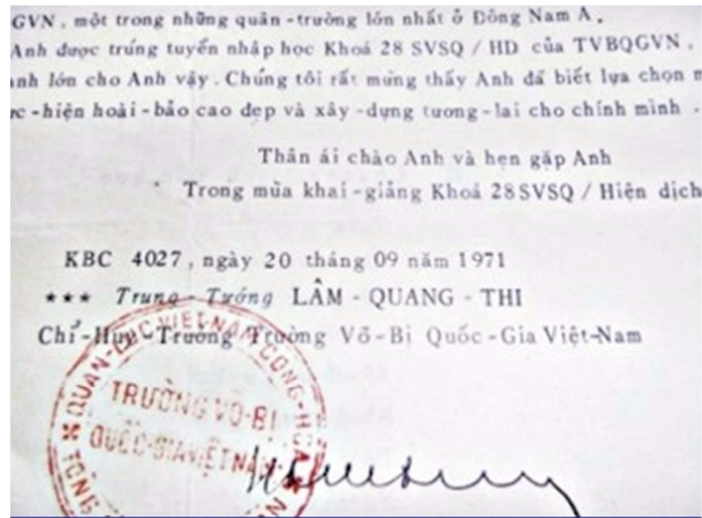 GVN, một trong những quân-trường lớn nhất ở Đông Nam Á.
Anh được trúng tuyển nhập học Khoá 28 SVSQ / HD của TVBQGVN,
lớn cho Anh vậy. Chúng tôi rất mừng thấy Anh đã biết lựa chọn
-hiện hoài-bảo cao đẹp và xây-dựng tương-lai cho chính mình.
Thân ái chào Anh và hẹn gặp Anh
Trong mùa khai-giảng Khoá 28 SVSQ / Hiện dịch
KBC 4027, ngày 20 tháng 09 năm 1971
*** Trung-Tướng LÂM-QUANG-THI
Chỉ-Huy-Trưởng Trường Võ-Bị Quốc-Gia Việt-Nam
QUÂN-LỰC VIỆT-NAM CỘNG-HÒA
TRƯỜNG VÕ-BỊ
QUỐC-GIA VIỆT NAM
TỔNG